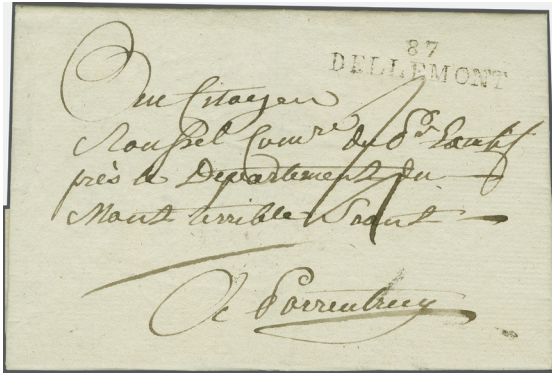 87
DELLEMONT
Au Citoyen
Roussel Comre du
près le Departement du
Mont terrible
A Porrentruy